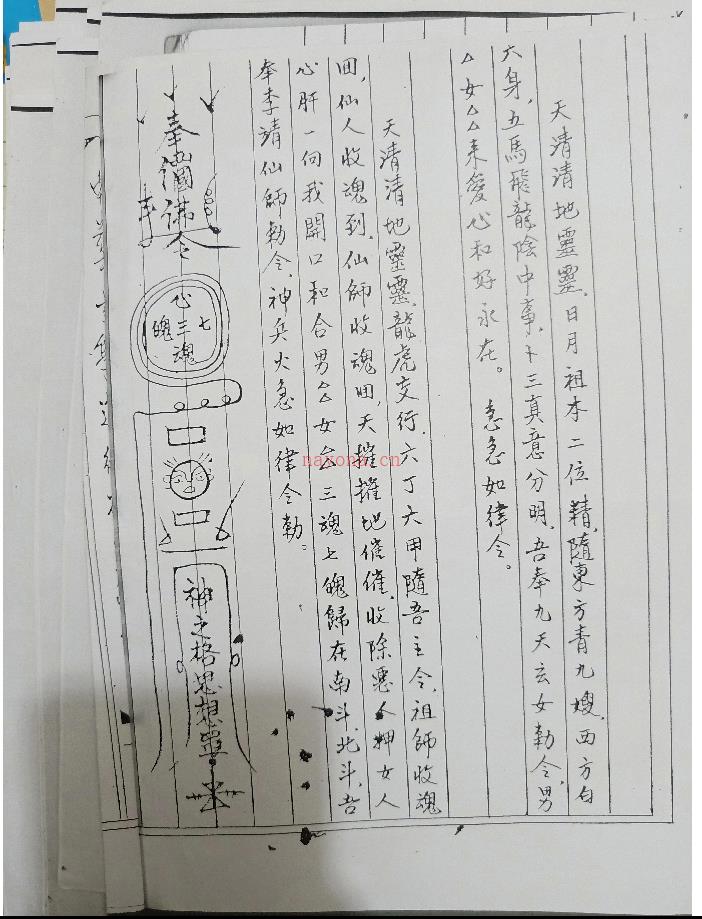 天清清地靈靈、日月祖本二位精、隨東方青九嫂、西方白
六身、五馬飛龍陰中事、卜三真意分明、吾奉九天玄女勅令、男
△女△△来愛心和好永在。 急急如律令。
天清清地靈靈、龍虎交行、六丁六甲隨吾主令、祖師收魂
田、仙人收魂到、仙師收魂田、天摧摧地催催、收除惡人押女人
心肝一向我開口和合男△△女△△三魂七魄歸在南斗、北斗、吾
奉李靖仙師勅令、神兵火急如律令勅：
奉
佛令
心三魂
七
魄
神之格思想單
nayona.cn